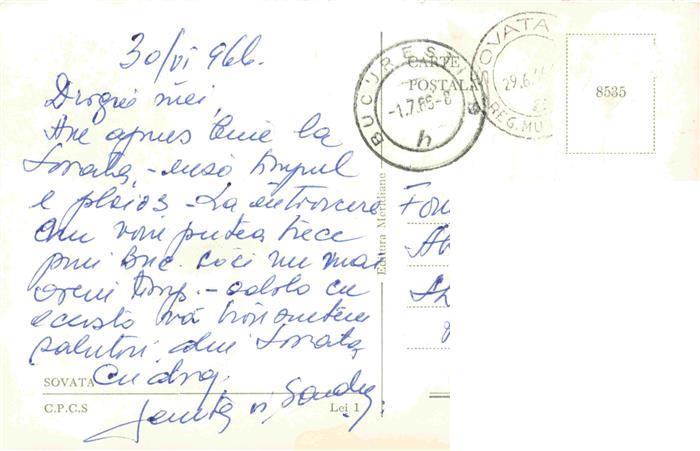 30/VI 966.
Dragii mei,
Am ajuns bine la
Sovata, - însă timpul
e ploios - La întoarcere
nu vom putea trece
prin Buc. căci nu mai
avem timp. - odată cu
aceasta vă trimitem
salutări din Sovata,
Cu drag,
și Sandu
SOVATA
C.P.C.S
Lei 1
Editura Meridiane
CARTE
POȘTALĂ
BUCUREȘTI
-1.7.66-8
h
SOVATA
29.6.
REG. MU
8535